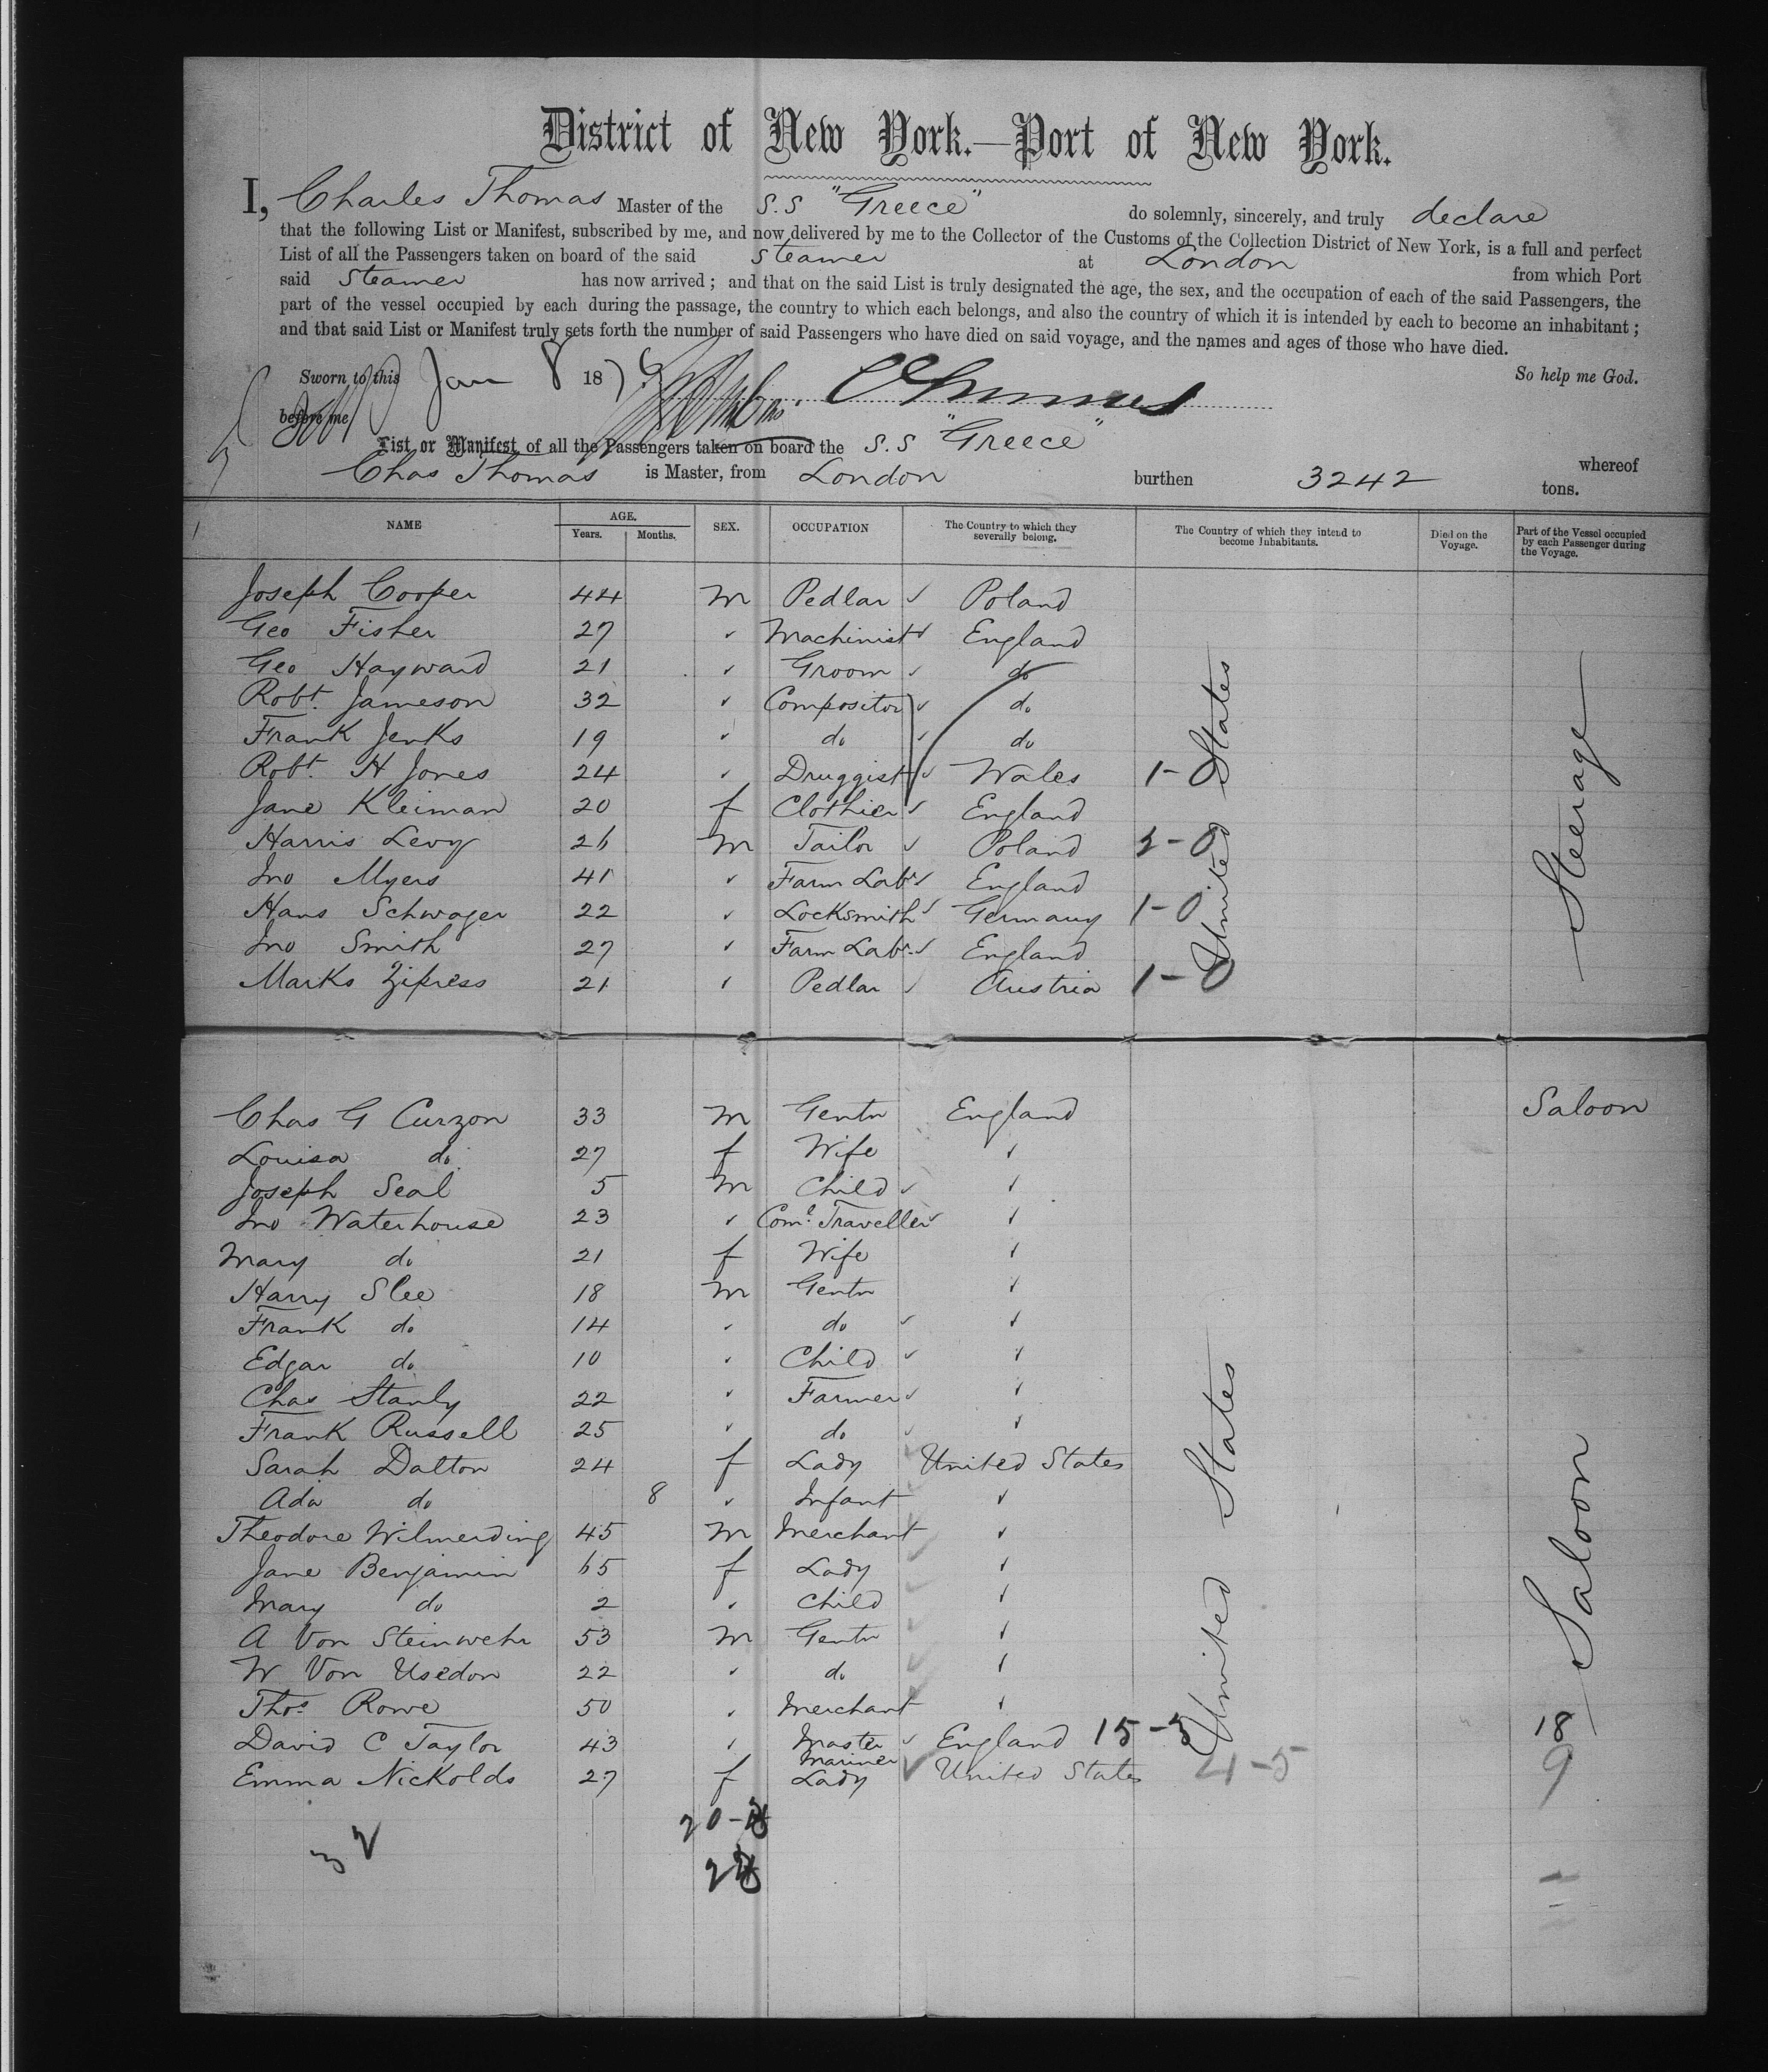 District of New York.—Port of New York.
I, Charles Thomas Master of the S.S "Greece" do solemnly, sincerely, and truly declare
that the following List or Manifest, subscribed by me, and now delivered by me to the Collector of the Customs of the Collection District of New York, is a full and perfect
List of all the Passengers taken on board of the said Steamer at London from which Port
said Steamer has now arrived; and that on the said List is truly designated the age, the sex, and the occupation of each of the said Passengers, the
part of the vessel occupied by each during the passage, the country to which each belongs, and also the country of which it is intended by each to become an inhabitant;
and that said List or Manifest truly sets forth the number of said Passengers who have died on said voyage, and the names and ages of those who have died.
Sworn to this Jan 8 18 So help me God.
before me
List or Manifest of all the Passengers taken on board the S.S "Greece" whereof
Chas Thomas is Master, from London burthen 3242 tons.
NAME AGE. Years. Months. SEX. OCCUPATION The Country to which they severally belong. The Country of which they intend to become Inhabitants. Died on the Voyage. Part of the Vessel occupied by each Passenger during the Voyage.
Joseph Cooper 44 m Pedlar ✓ Poland
Geo Fisher 27 ✓ Machinist ✓ England
Geo Hayward 21 ✓ Groom ✓ do
Robt. Jameson 32 ✓ Compositor ✓ do
Frank Jenks 19 ✓ do ✓ do
Robt. H Jones 24 ✓ Druggist ✓ Wales 1-0
Jane Kleiman 20 f Clothier ✓ England
Harris Levy 26 m Tailor ✓ Poland 2-0
Jno Myers 41 ✓ Farm Labr ✓ England
Hans Schwager 22 ✓ Locksmith ✓ Germany 1-0
Jno Smith 27 ✓ Farm Labr. ✓ England
Marks Zipress 21 ✓ Pedlar ✓ Austria 1-0
United States
Steerage
Chas G Curzon 33 m Gentn England Saloon
Louisa do 27 f Wife ✓
Joseph Seal 5 m Child ✓ ✓
Jno Waterhouse 23 ✓ Coml. Traveller ✓ ✓
Mary do 21 f Wife ✓
Harry Slee 18 m Gentn ✓
Frank do 14 ✓ do ✓ ✓
Edgar do 10 ✓ Child ✓ ✓
Chas Stanly 22 ✓ Farmer ✓ ✓
Frank Russell 25 ✓ do ✓ ✓
Sarah Dalton 24 f Lady United States
Ada do 8 ✓ Infant ✓
Theodore Wilmerding 45 m Merchant ✓
Jane Benjamin 65 f Lady ✓
Mary do 2 ✓ Child ✓
A Von Steinwehr 53 m Gentn ✓
W Von Usedon 22 ✓ do ✓
Thos. Rowe 50 ✓ Merchant ✓
David C Taylor 43 ✓ Master Mariner ✓ England 15-3 18
Emma Nickolds 27 f Lady ✓ United States 4-5 9
United States
Saloon
32